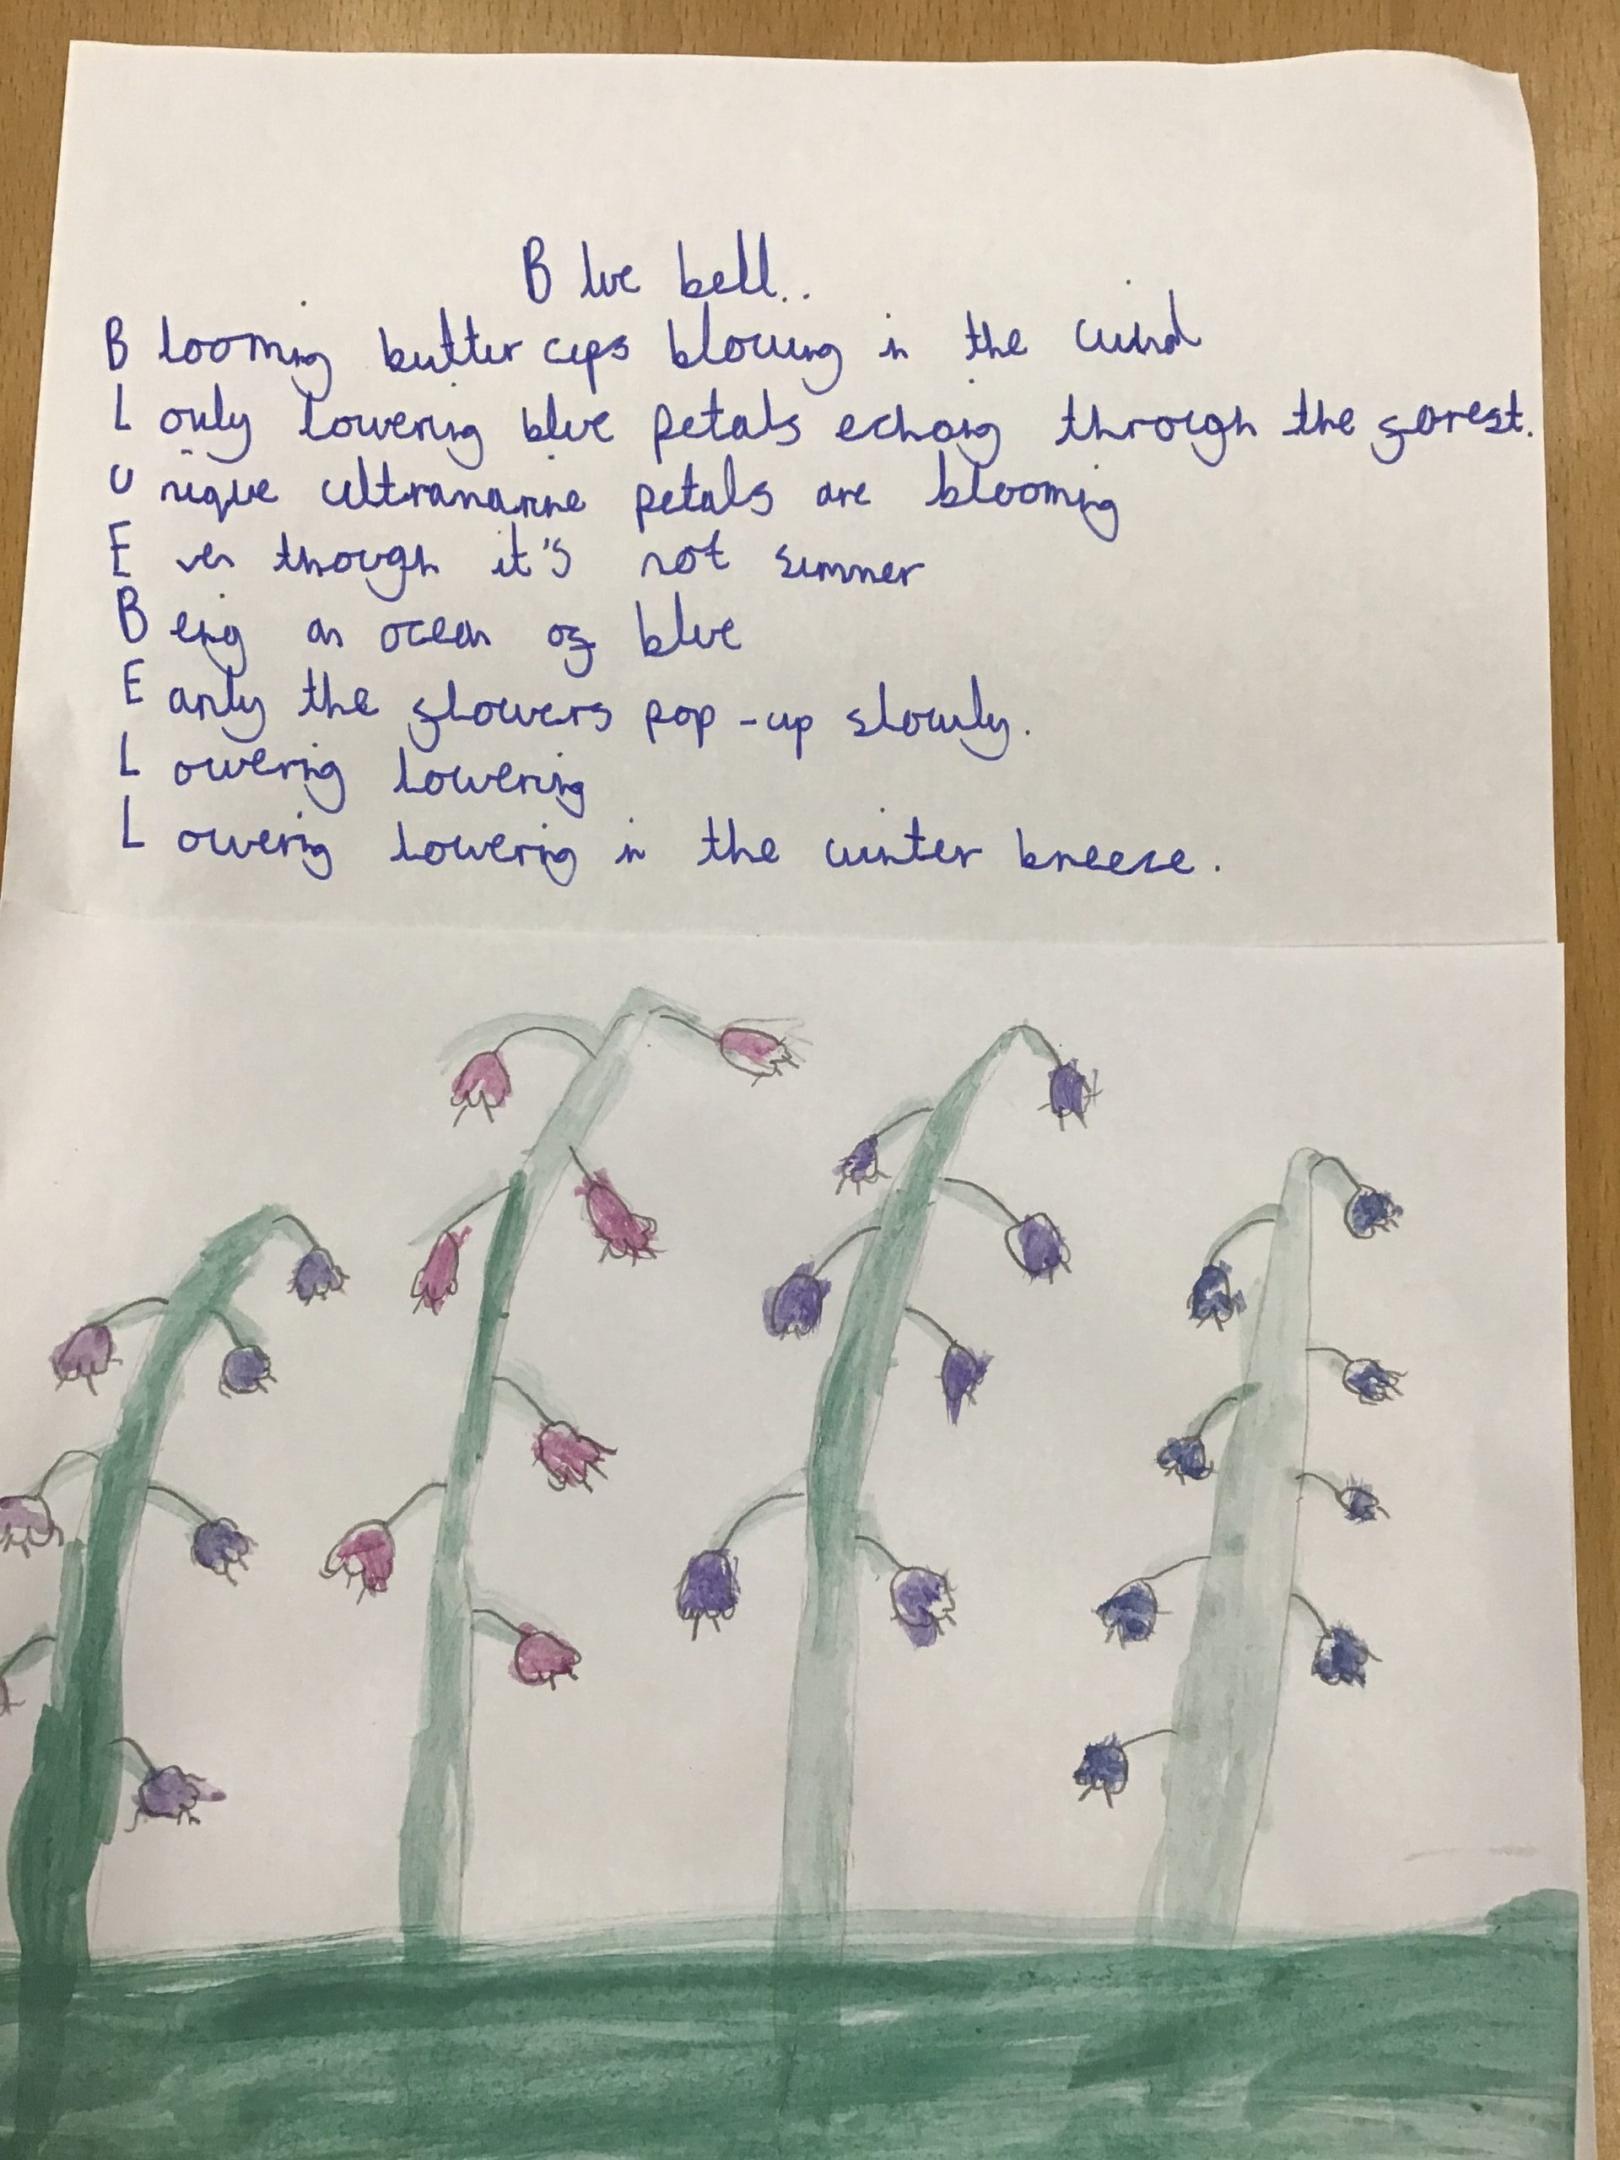 Blue bell..
Blooming buttercups blowing in the wind
Lonly lowering blue petals echoing through the forest.
Unique ultramarine petals are blooming
Even though it's not summer
Being an ocean of blue
Early the flowers pop-up slowly.
Lowering lowering
Lowering lowering in the winter breeze.